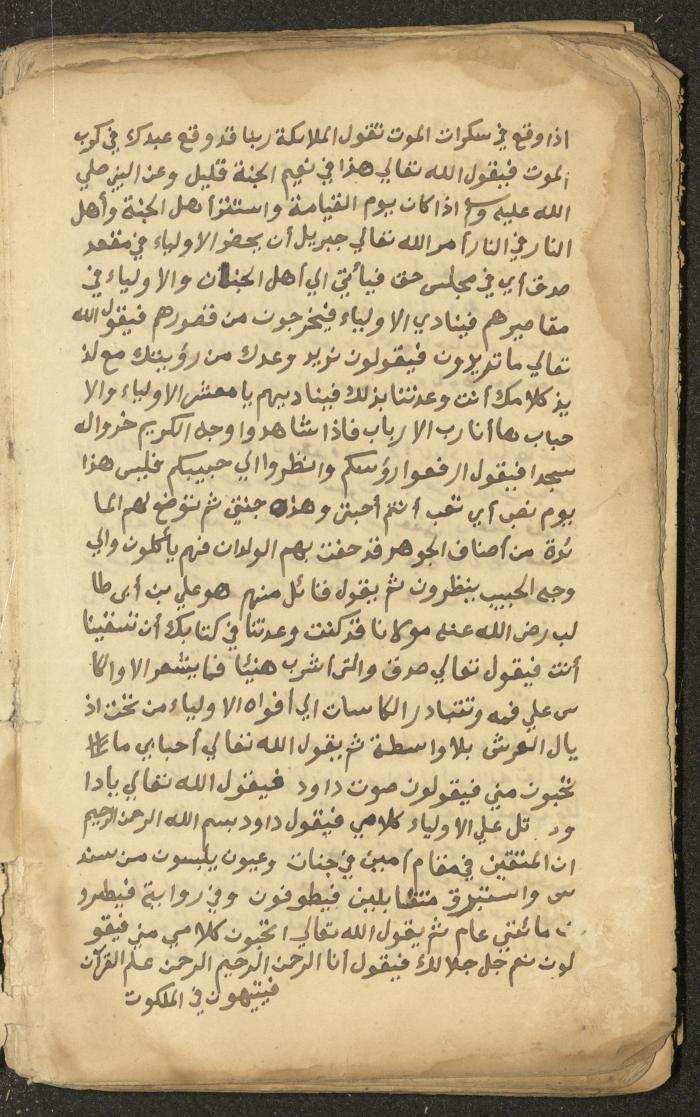 اذا وقع في سكرات الموت تقول الملائكة ربنا قد وقع عبدك في كرب
الموت فيقول الله تعالي هذا في نعيم الجنة قليل وعن النبي صلي
الله عليه وسلم اذا كان يوم القيامة واستقر أهل الجنة وأهل
النار في النار أمر الله تعالي جبريل أن يحضر الاولياء في مقعد
صدق أي في مجلس حق فيأتي الي أهل الجنان والاولياء في
مقاصيرهم فينادي الاولياء فيخرجون من قصورهم فيقول الله
تعالي ما تريدون فيقولون نريد وعدك من رؤيتك مع لذ
يذ كلامك أنت وعدتنا بذلك فيناديهم يا معشر الاولياء والا
حباب ها أنا رب الارباب فاذا شاهدوا وجه الكريم خروا له
سجدا فيقول ارفعوا رؤسكم وانظروا الي حبيبكم فليس هذا
يوم نصب أي تعب أنتم أحبتي وهذه جنتي ثم توضع لهم الما
ئدة من أصناف الجوهر قد حفت بهم الولدان فهم يأكلون والي
وجه الحبيب ينظرون ثم يقول قائل منهم هو علي بن أبي طا
لب رضي الله عنه مولانا قد كنت وعدتنا في كتابك أن تسقينا
أنت فيقول تعالي صدق والتي اشرب هنيئا فما يشعر الا والكا
س علي فمه وتتبادر الكاسات الي أفواه الاولياء من تحت اذ
يال العرش بلا واسطة ثم يقول الله تعالي أحبابي ما
تحبون مني فيقولون صوت داود فيقول الله تعالي يا دا
ود تل علي الاولياء كلامي فيقول داود بسم الله الرحمن الرحيم
ان المتقين في مقام أمين في جنات وعيون يلبسون من سند
س واستبرق متقابلين فيطوفون وفي رواية فيطيرو
ن مائتي عام ثم يقول الله تعالي اتحبون كلامي مني فيقو
لون نعم جل جلالك فيقول أنا الرحمن الرحيم الرحمن علم القرآن
فيتيهون في الملكوت